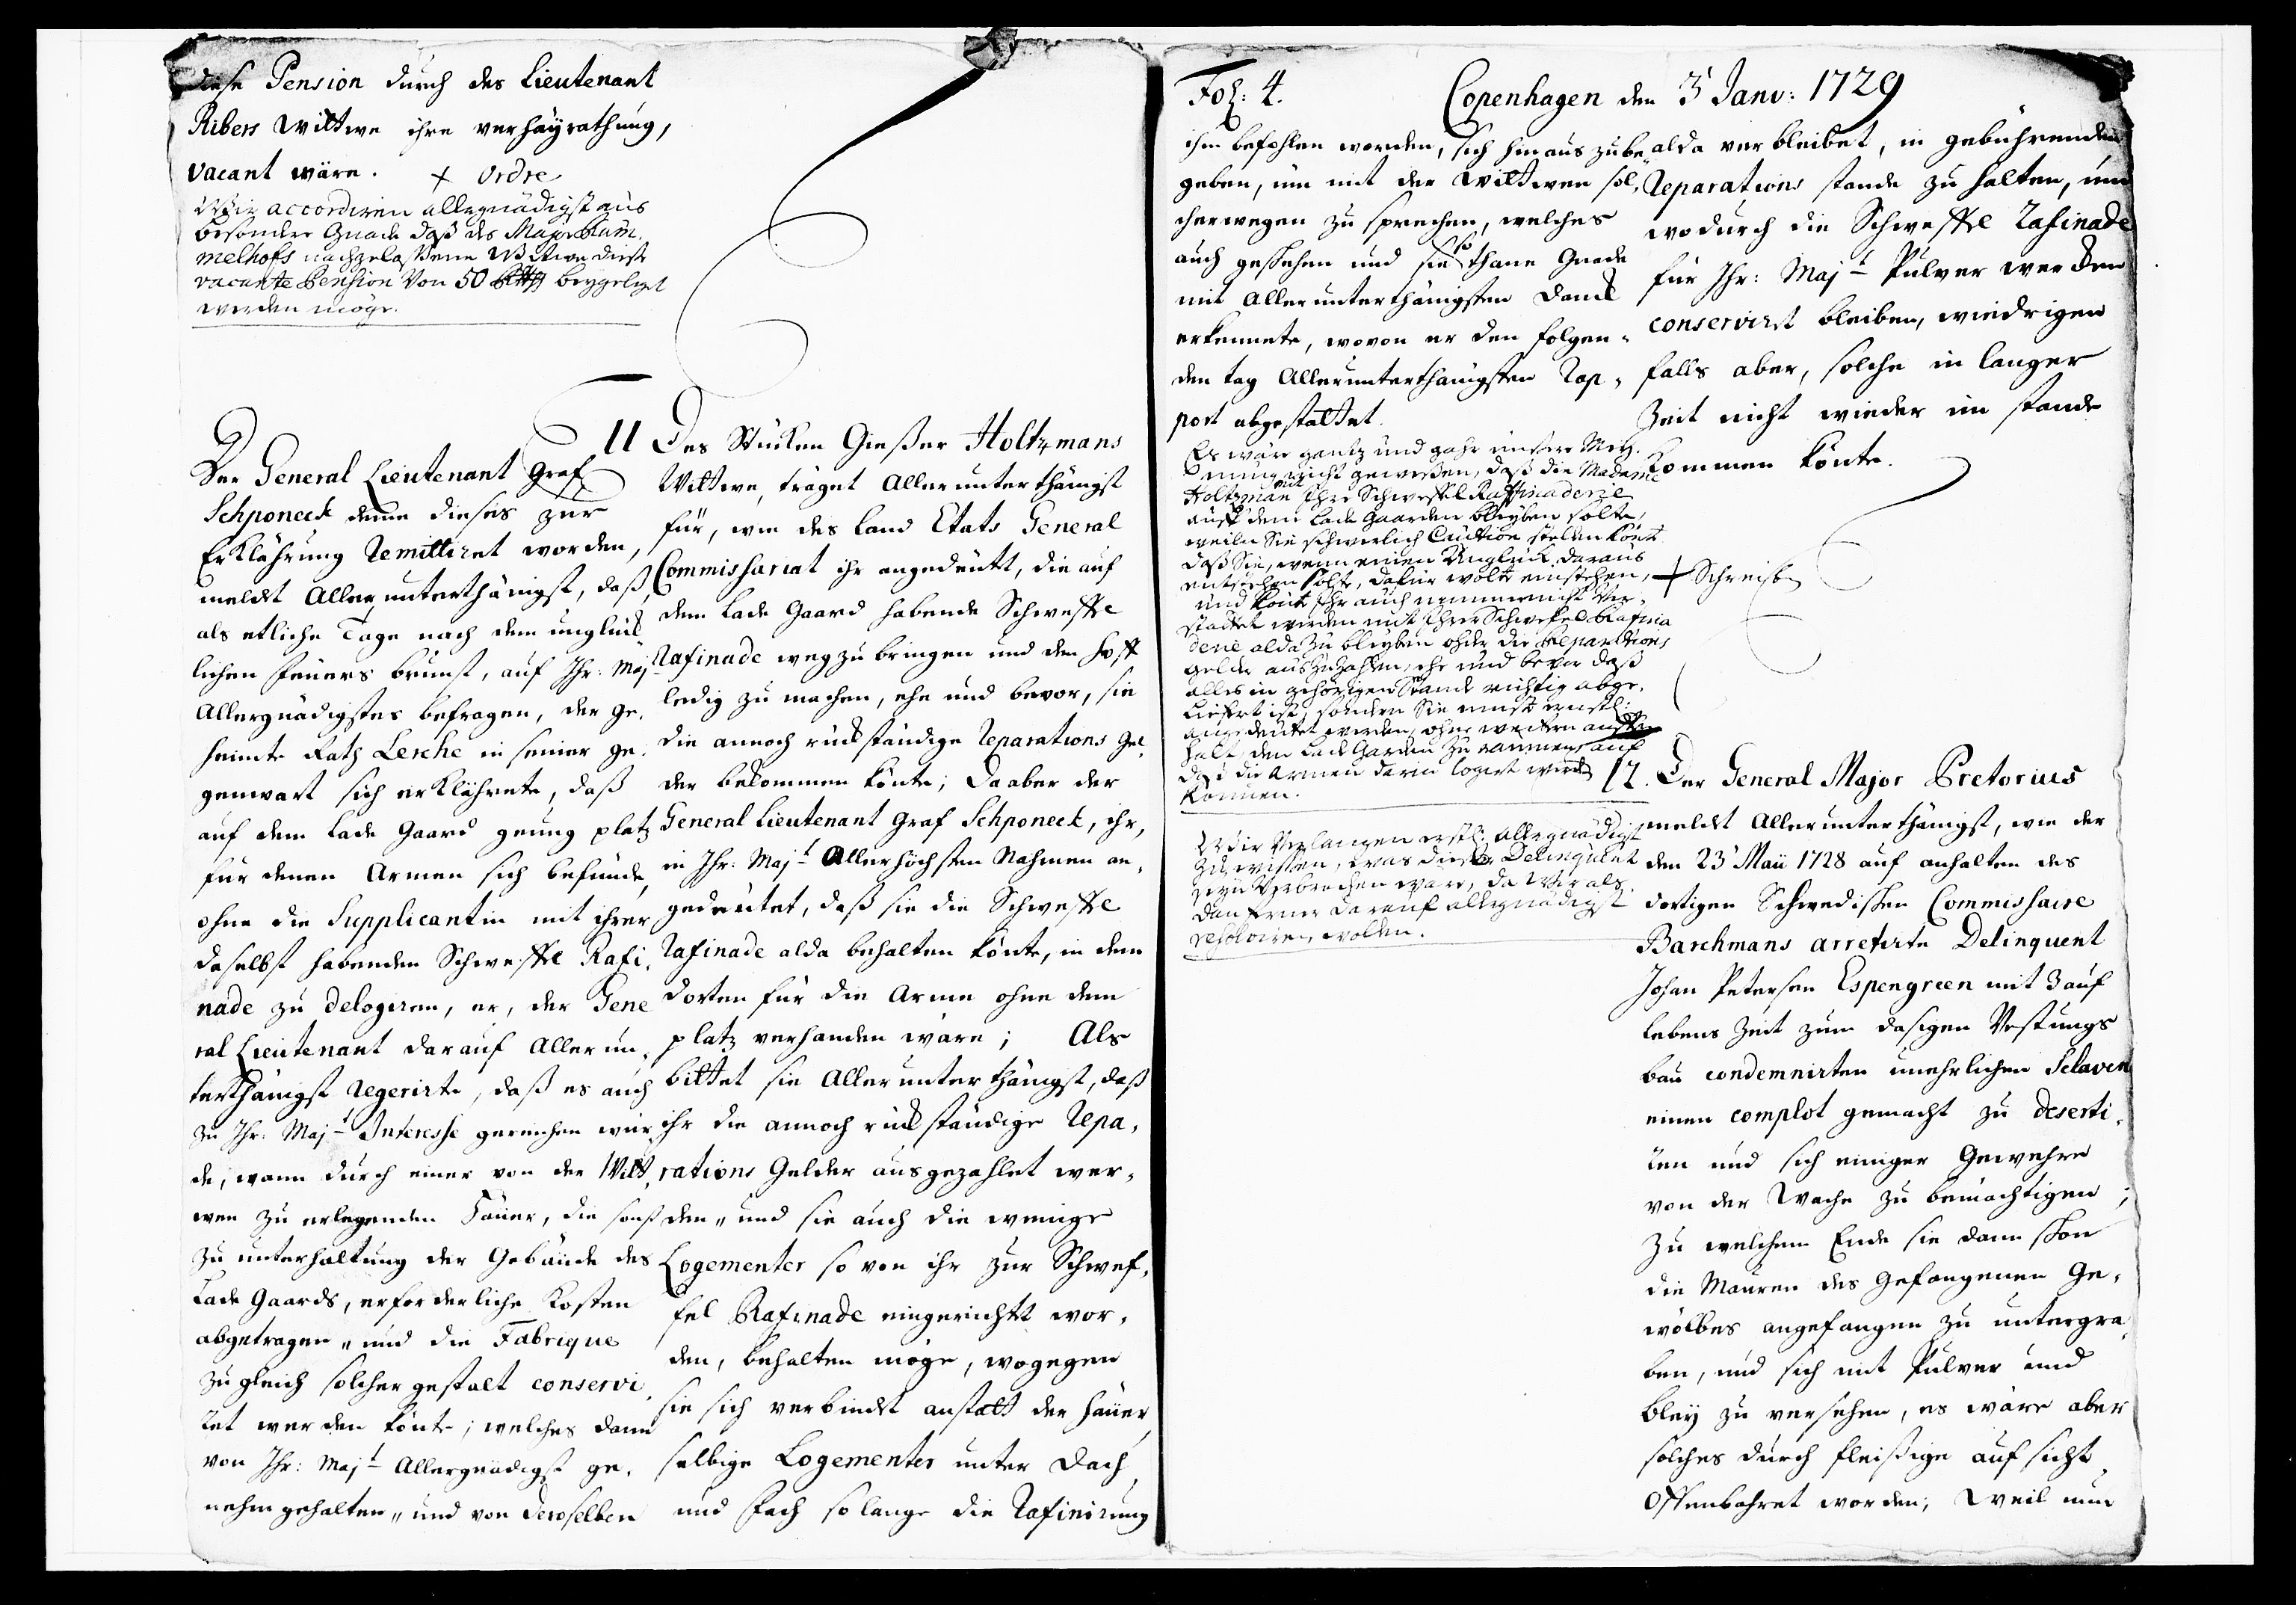 diese Pension durch des Lieutenant
Ribers Wittwe ihre verhäyrathung,
vacant wäre. + Ordre
Wir accordiren allergnädigst aus
besonder Gnade daß des Major Rum¬
melhofs nachgelaßene Witwe diese
vacante Pension von 50 beygeleget
werden möge.
Der General Lieutenant Graf
Schponeck deme dieses zur
Erklährung remittiret worden,
meldet Allerunterthänigst, daß,
als etliche Tage nach dem unglück
lichen feüers brunst, auf Ihr: Maj
Allergnädigstes befragen, der ge¬
heimte Rath Lerche in seiner ge¬
genwart sich erklährete, daß
auf dem Lade Gaard genung platz
für denen Armen sich befünde,
ohne die Supplicantin mit ihrer
daselbst habenden Schweffel Rafi¬
nade zu delogiren, er, der Gene
ral Lieutenant darauf Allerun¬
terthänigst regerirte, daß es auch
zu Ihr: Majt Interesse gereichen wür
de, wann durch einer von der Witt¬
wen zu erlegenden Häuer, die sonst
zu unterhaltung der Gebäude des
Lade Gaards, erforderliche Kosten
abgetragen, und die Fabrique
zugleich solchergestalt conservi¬
ret werden könte; welches dann
von Ihr: Majt Allergnädigst ge¬
nehm gehalten, und von deroselben
11 Des Stücken Gießer Holtzmans
Wittwe, träget Allerunterthänigst
für, wie des Land Etats General
Commissariat ihr angedeutt, die auf
dem Lade Gaard habende Schweffel
Rafinade wegzubringen und den Hoff
ledig zu machen, ehe und bevor, sie
die annoch rückständige Reparations Gel¬
der bekommen könte; Da aber der
General Lieutenant Graf Schponeck, ihr,
in Ihr: Majt Allerhöchsten Nahmen an¬
gedeutet, daß sie die Schweffel
Rafinade alda behalten könte, in dem
dorten für die Arme ohne dem
platz verhanden wäre; Als
bittet sie Allerunterthänigst, daß
ihr die annoch rückständige Repa¬
rations Gelder ausgezahlet wer¬
den, und sie auch die wenige
Logementer so von ihr zur Schwef¬
fel Rafinade eingerichtet wor¬
den, behalten möge, wogegen
sie sich verbindet anstatt der Häuer,
selbige Logementer unter Dach
und Fach so lange die Rafinirung
Fol: 4. Copenhagen den 3t Janv: 1729
ihm befohlen worden, sich hinaus zube
geben, um mit der Wittwen sol¬
cherwegen zu sprechen, welches
auch geschehen und sie sothane Gnade
mit Allerunterthänigsten Danck
erkennete, wovon er den folgen¬
den tag Allerunterthänigsten Rap¬
port abgestattet.
Es wäre gantz und gahr unsere Mey¬
nung nicht gewesen, daß die Madame
Holtzman mit Ihre Schweffel Raffinaderie
auff dem Lade Gaarden bleyben solte,
weiln Sie schwerlich Caution stellen könt
daß Sie, wenn einen Unglück daraus
entstehen solte, dafür wolte einstehen,
und könt Ihr auch nimmer nicht ver¬
stattet werden mit Ihrer Schwefel Rafina
derie alda zu bleyben oder die Reparations
gelder auszuzahlen, ehe und bevor daß
alles in gehörigen Stande richtig abge¬
liefert ist, sondern Sie muste ernstl:
angedeutet werden, ohne weitern auffent
halt den Lade Garden zu räumen auf
daß die Armen darin logirt werden
können.
Wir Verlangen erstl: allergnädigst
zu wissen, was dieser Delinquent
sein Verbrechen wäre, da Wir als¬
dan ferner darauf allergnädigst
resolviren wollen.
alda verbleibet, in gebührenden
Reparations stande zu halten, um
wodurch die Schweffel Rafinade
für Ihr: Majt Pulver werden
conserviret bleiben, wiedrigen
falls aber, solche in langer
Zeit nicht wieder im stande
kommen könte.
+ Schreiben
12. Der General Major Pretorius
meldet Allerunterthänigst, wie der
den 23t Maii 1728 auf anhalten des
dortigen Schwedischen Commissaire
Barchmans arretirte Delinquent
Johan Petersen Espengreen mit 3 auf
lebens Zeit zum dasigen Vestungs
bau condemnirten unehrlichen Sclaven
einen complot gemacht zu deserti¬
ren und sich einiger Gewehre
von der Wache zu bemächtigen;
Zu welchem Ende sie dann schon
die Mauren des Gefangenen Ge¬
wölbes angefangen zu untergra
ben, und sich mit Pulver und
Bley zu versehen, es wäre aber
solches durch fleißige aufsicht
Offenbahret worden; Weil nun